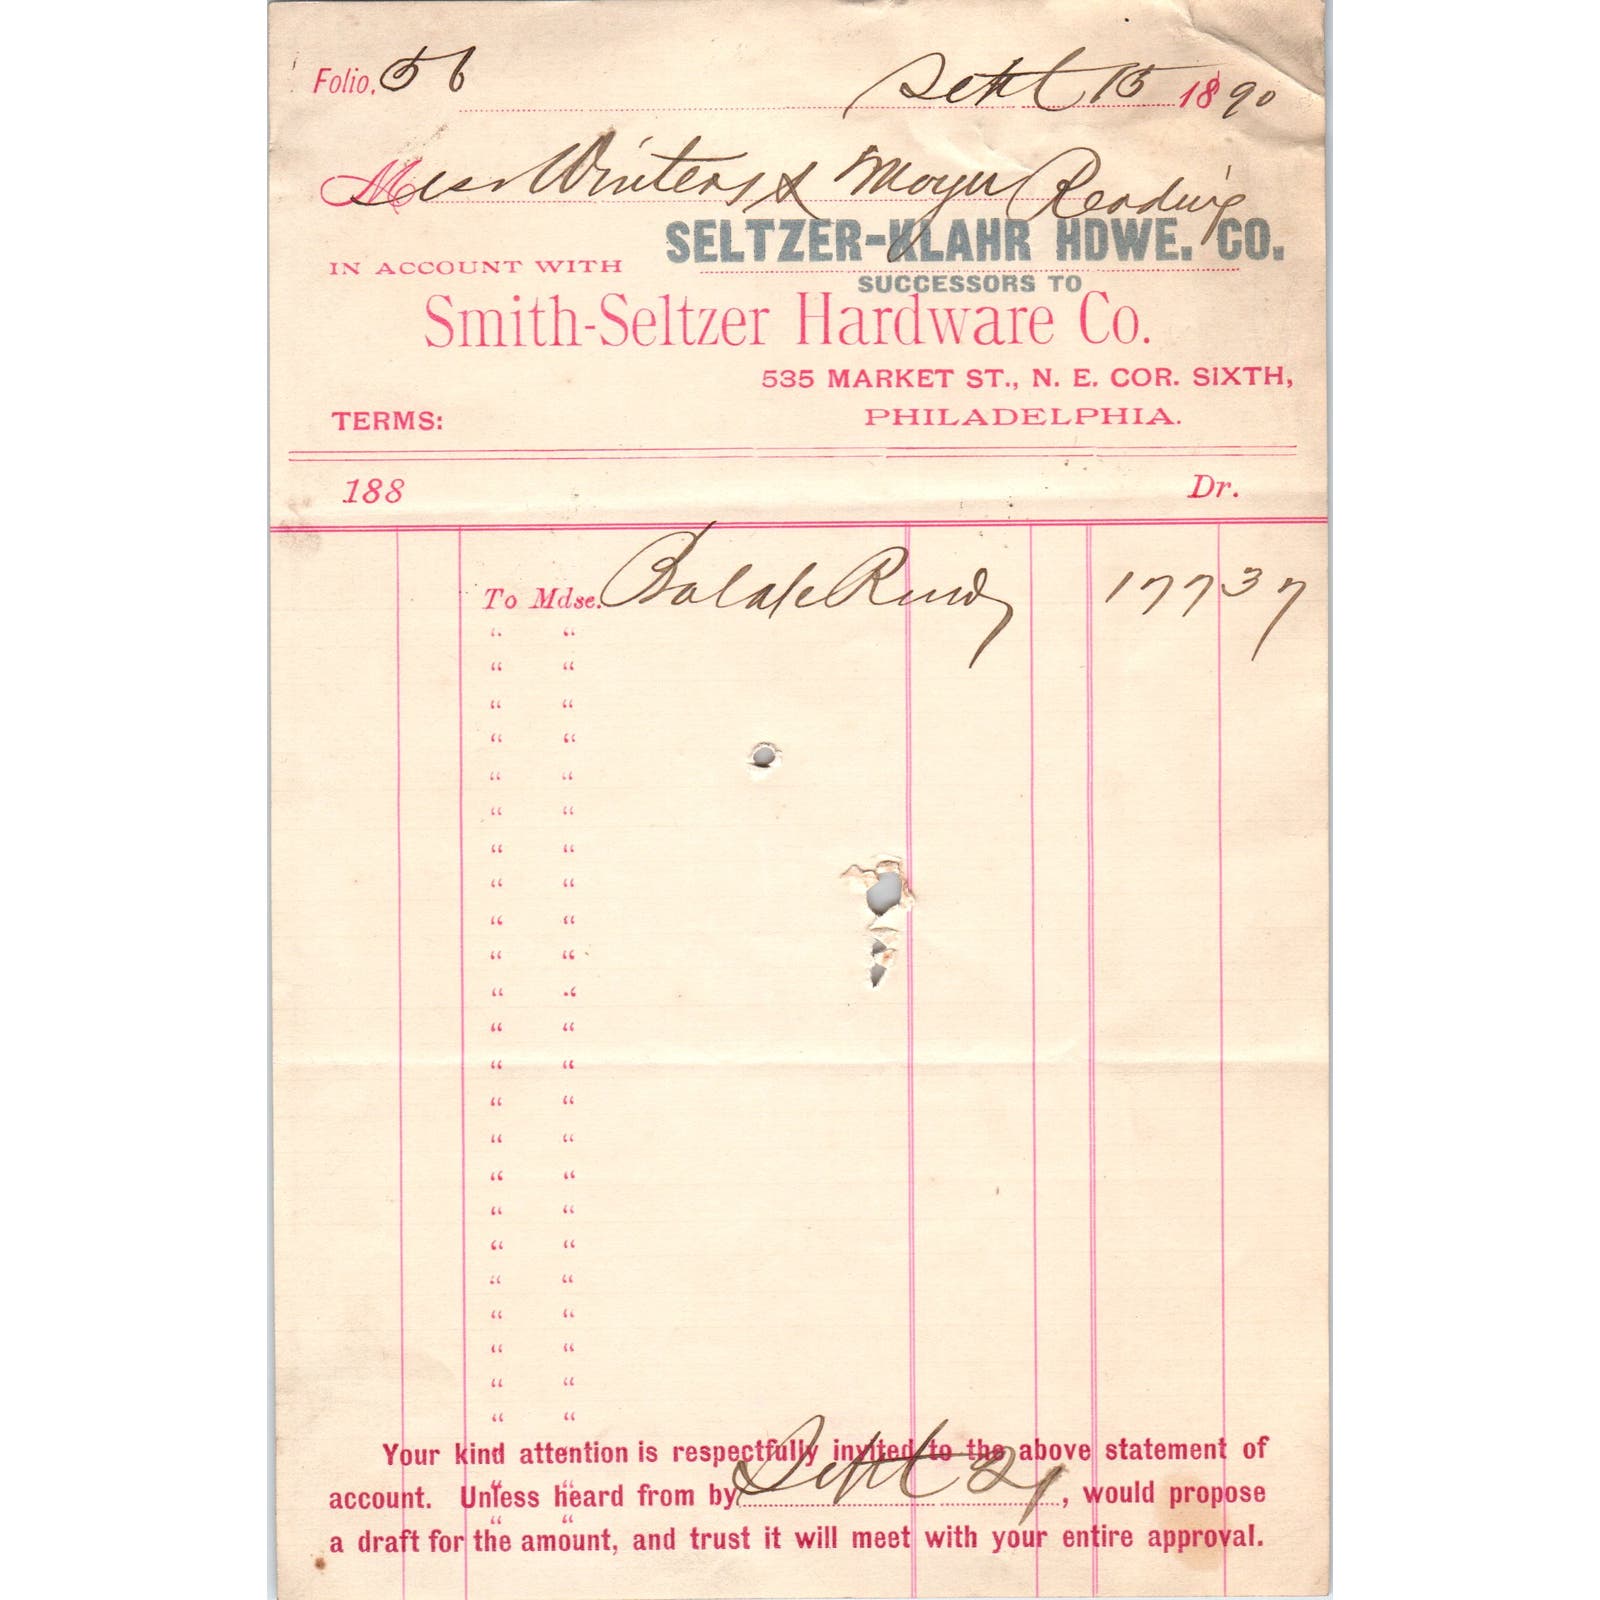 Folio, 56 Sept 15 1890
Mess Winters & Moyer Reading
SELTZER-KLAHR HDWE. CO.
IN ACCOUNT WITH
SUCCESSORS TO
Smith-Seltzer Hardware Co.
535 MARKET ST., N. E. COR. SIXTH,
TERMS: PHILADELPHIA.
188 Dr.
To Mdse. 177 37
" "
" "
" "
" "
" "
" "
" "
" "
" "
" "
" "
" "
" "
" "
" "
" "
" "
" "
" "
" "
" "
" "
" "
Your kind attention is respectfully invited to the above statement of
" "
account. Unless heard from by Sept 21, would propose
" "
a draft for the amount, and trust it will meet with your entire approval.